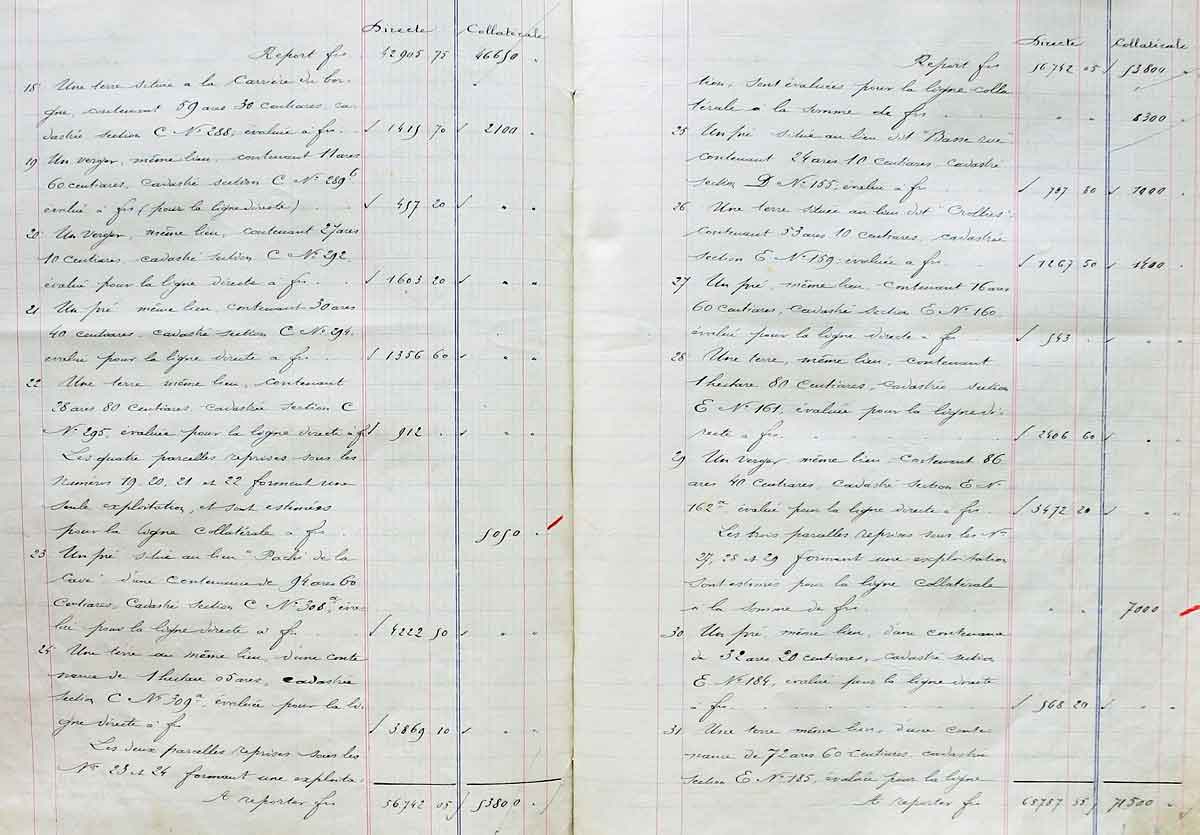 Directe Collatérale
Report frs 42905 75 46650 "
18 Une terre située à la Carrière du bor-
gne, contenant 59 ares 30 centiares, ca-
dastrée section C N° 288, évaluée à frs 1415 70 2100 "
19 Un verger, même lieu, contenant 11 ares
60 centiares, cadastré section C N° 289b
évalué à frs (pour la ligne directe) 457 20 " "
20 Un verger, même lieu, contenant 27 ares
10 centiares, cadastré section C N° 292,
évalué pour la ligne directe à frs 1603 20 " "
21 Un pré même lieu, contenant 30 ares
40 centiares, cadastré section C N° 294,
évalué pour la ligne directe à frs 1356 60 " "
22 Une terre même lieu, contenant
28 ares 80 centiares, cadastrée section C
N° 295, évaluée pour la ligne directe à f 912 " " "
Les quatre parcelles reprises sous les
numéros 19, 20, 21 et 22 forment une
seule exploitation, et sont estimées
pour la ligne collatérale à frs 5050 "
23 Un pré situé au lieu "Pachi de la
Cave" d'une contenance de 94 ares 60
centiares, cadastré section C N° 308a, éva-
lué pour la ligne directe à frs 4222 50 " "
24 Une terre au même lieu, d'une conte
nance de 1 hectare 05 ares, cadastrée
section C N° 309a, évaluée pour la li-
gne directe à frs 3869 10 " "
Les deux parcelles reprises sous les
N° 23 et 24 formant une exploita-
A reporter frs 56742 05 53800 "
Directe Collatérale
Report frs 56742 05 53800 "
tion, sont évaluées pour la ligne colla
térale à la somme de frs " " 8300 "
25 Un pré situé au lieu dit "Basse rue"
contenant 24 ares 10 centiares, cadastré
section D N° 155, évalué à frs 787 80 1000 "
26 Une terre située au lieu dit "Crolliès"
contenant 53 ares 10 centiares, cadastrée
section E N° 159, évaluée à frs 1267 50 1400 "
27 Un pré, même lieu, contenant 16 ares
60 centiares, cadastré section E N° 160,
évalué pour la ligne directe à frs 543 " " "
28 Une terre, même lieu, contenant
1 hectare 80 centiares, cadastrée section
E N° 161, évaluée pour la ligne di-
recte à frs 2406 60 " "
29 Un verger, même lieu, contenant 86
ares 40 centiares, cadastré section E N°
162a, évalué pour la ligne directe à frs 3472 20 " "
Les trois parcelles reprises sous les N°
27, 28 et 29 forment une exploitation
sont estimées pour la ligne collatérale
à la somme de frs " " 7000 "
30 Un pré, même lieu, d'une contenance
de 32 ares 20 centiares, cadastré section
E N° 184, évalué pour la ligne directe
à frs 568 20 " "
31 Une terre même lieu, d'une conte
nance de 72 ares 60 centiares, cadastrée
section E N° 185, évaluée pour la ligne
A reporter frs 65787 35 71500 "